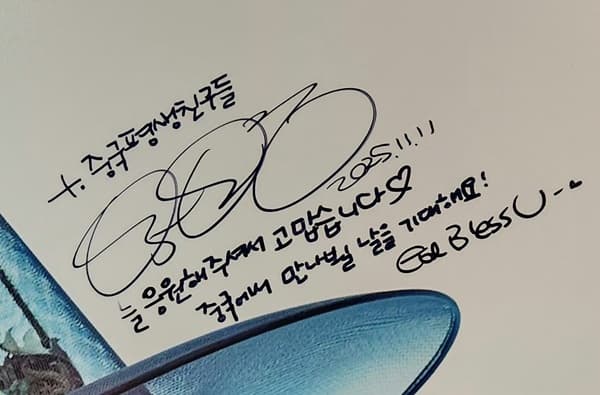 To. 중국평생친구들
2025.11.11
늘 응원해주셔서 고맙습니다♡
중국에서 만나뵐 날을 기대해요!
God Bless U~^